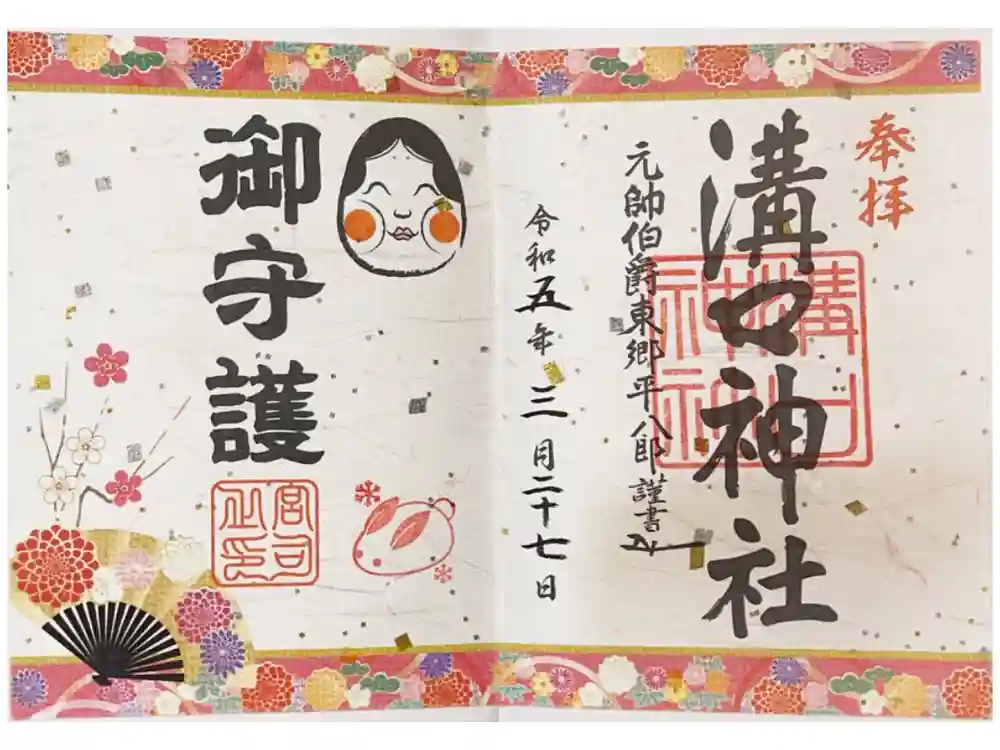 奉拝
溝口神社
溝口神社
元帥伯爵東郷平八郎謹書
令和五年三月二十七日
御守護
宮司之印